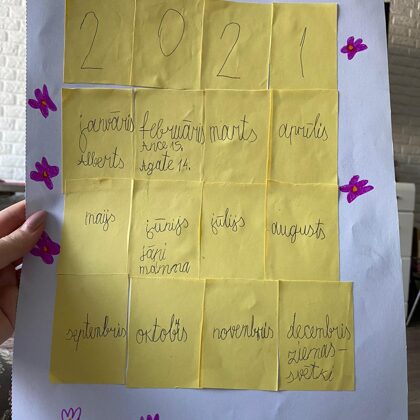 2 0 2 1
janvāris
Alberts
februāris
Ance 15.
Agate 14.
marts
aprīlis
maijs
jūnijs
jāņi
mamma
jūlijs
augusts
septembris
oktobris
novembris
decembris
ziemas-
svētki